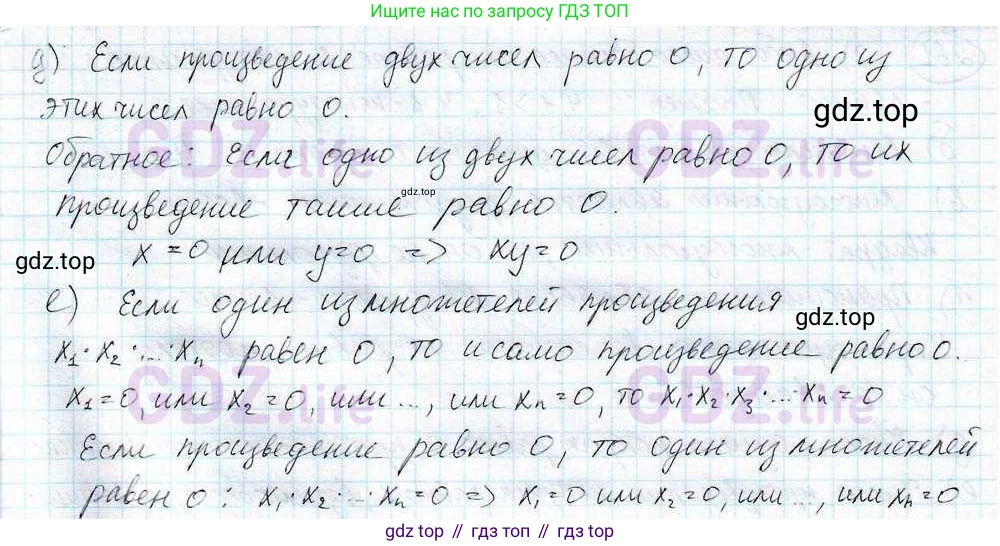 Ищите нас по запросу ГДЗ ТОП
д) Если произведение двух чисел равно 0, то одно из
этих чисел равно 0.
gdz.top
GDZ.life GDZ.life
Обратное: Если одно из двух чисел равно 0, то их
gdz.top
произведение также равно 0.
x = 0 или y=0 => xy=0
gdz.top
е) Если один из множетелей произведения
gdz.top
x₁·x₂·...·xₙ равен 0, то и само произведение равно 0.
GDZ.life GDZ.life
x₁=0, или x₂=0, или ..., или xₙ=0, то x₁·x₂·x₃·...·xₙ=0
Если произведение равно 0, то один из множетелей
равен 0: x₁·x₂·...·xₙ=0 => x₁=0 или x₂=0, или ..., или xₙ=0
gdz.top // гдз.топ // gdz.top // гдз.топ